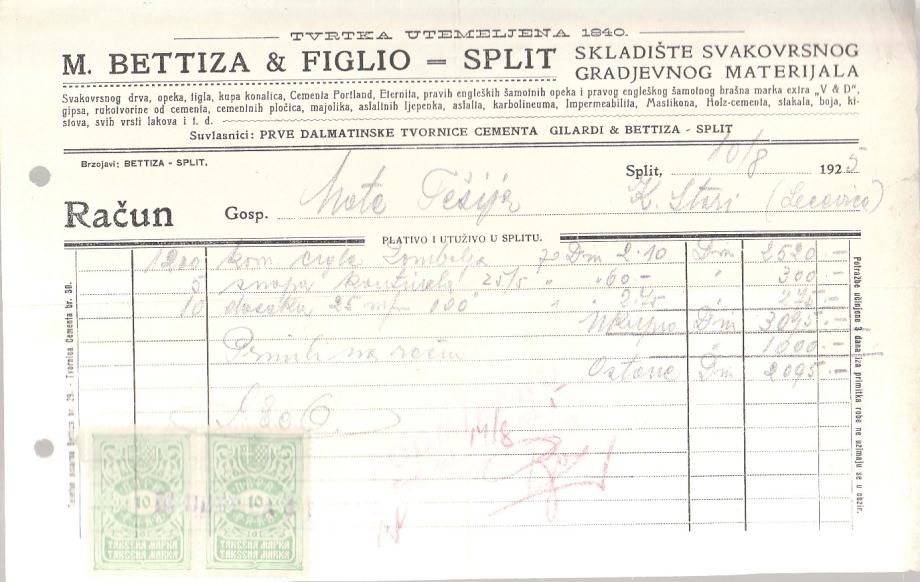 TVRTKA UTEMELJENA 1840.
M. BETTIZA & FIGLIO = SPLIT
SKLADIŠTE SVAKOVRSNOG
GRADJEVNOG MATERIJALA
Svakovrsnog drva, opeka, tigla, kupa konalica, Cementa Portland, Eternita, pravih engleških šamotnih opeka i pravog engleškog šamotnog brašna marka extra „V & D",
gipsa, rukotvorine od cementa, cementnih pločica, majolika, asfaltnih ljepenka, asfalta, karbolineuma, Impermeabilita, Mastikona, Holz-cementa, stakala, boja, ki-
stova, svih vrsti lakova i t. d.
Suvlasnici: PRVE DALMATINSKE TVORNICE CEMENTA GILARDI & BETTIZA - SPLIT
Brzojavi: BETTIZA - SPLIT.
Split, 10/8 1925
Račun
Gosp. Mate Tešija
K. Stari (Lecevica)
PLATIVO I UTUŽIVO U SPLITU.
1200 kom. cigla po Din 2·10 Din 2520.—
5 snopa 25/5 " " 60 — " 300.—
10 dasaka 25 m/m " " " 275.—
Ukupno Din 3095.—
Primili na račun " 1000.—
Ostaje Din 2095.—
14/8
Potražbe učinjene 3 dana iza primitka robe ne uzimaju se u obzir.
Tvornica Cementa br. 30.
10
ТАКСЕНА МАРКА
TAKSENA MARKA
10
ТАКСЕНА МАРКА
TAKSENA MARKA